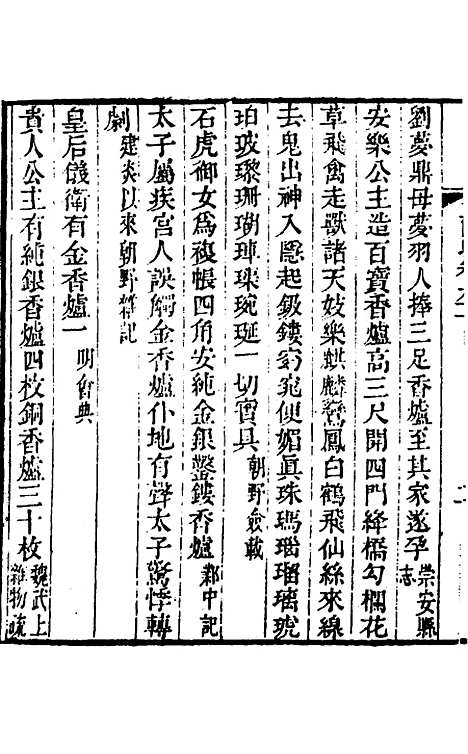 劉夢鼎母夢羽人捧三足香爐至其家遂孕崇安縣志
安樂公主造百寶香爐高三尺開四門絳橋勾欄花
草飛禽走獸諸天妓樂麒麟鸞鳳白鶴飛仙絲來線
去鬼出神入隱起鈒鏤窈窕便媚眞珠瑪瑙瑠璃琥
珀玻瓈珊瑚硨磲琬琰一切寳具朝野僉載
石虎御女爲複帳四角安純金銀鑿鏤香爐鄴中記
太子屬疾宮人誤觸金香爐仆地有聲太子驚悸轉
劇建炎以來朝野雜記
皇后儀衛有金香爐一明會典
貴人公主有純銀香爐四枚銅香爐三十枚魏武上雜物疏